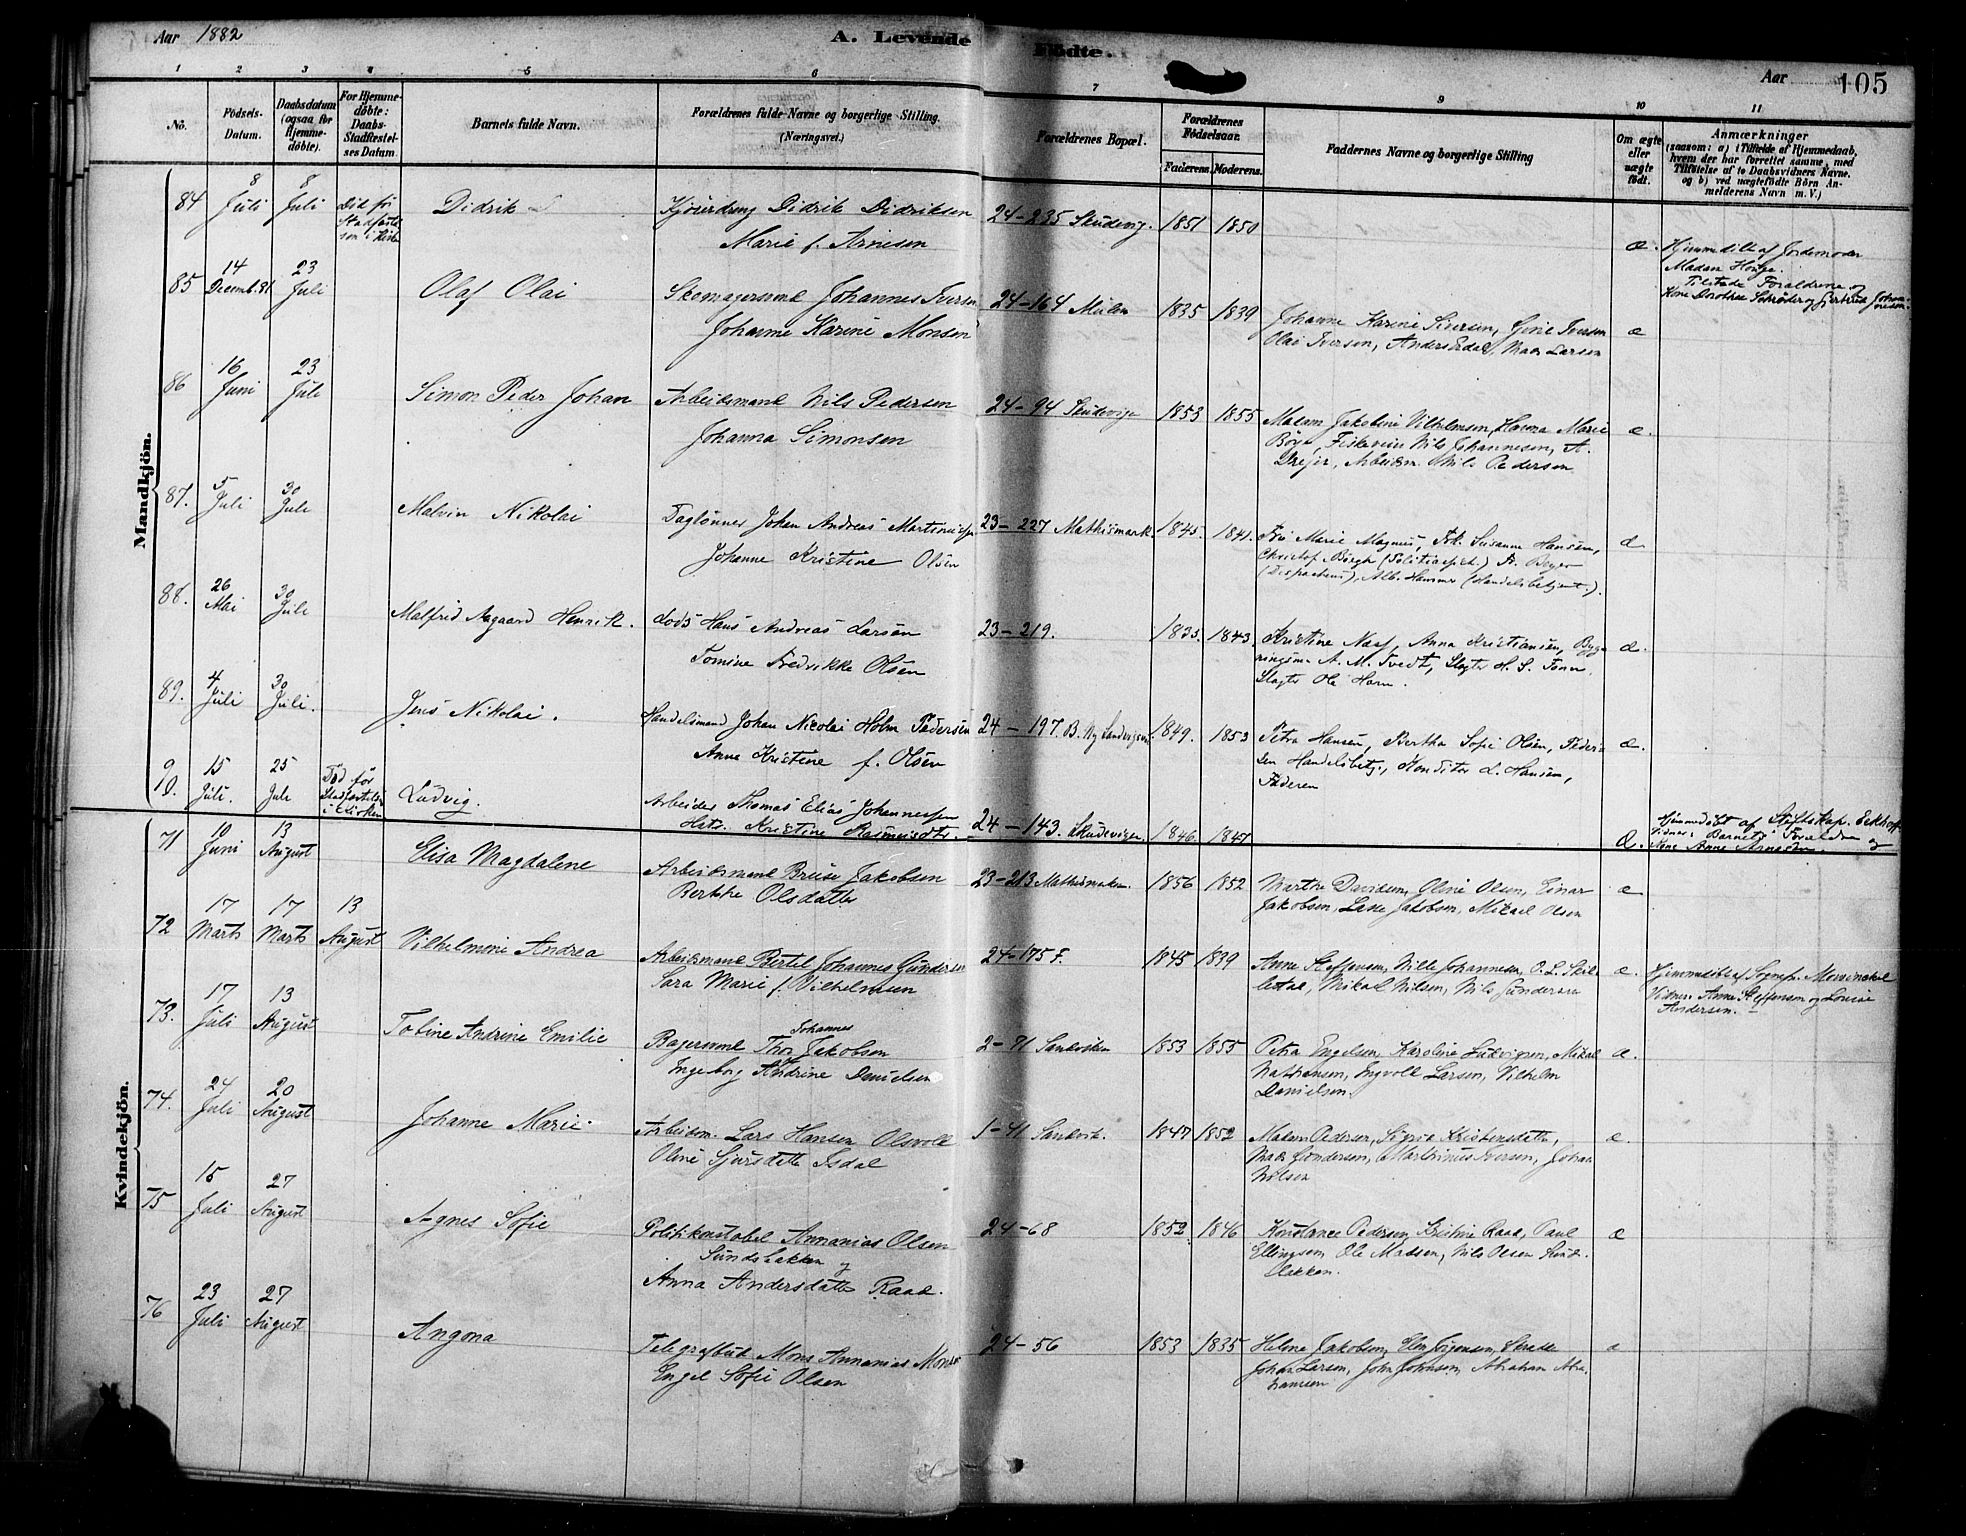 Aar 1882
A. Levende Födte.
Aar 105
1 2 3 4 5 6 7 8 9 10 11
No.
Födsels-Datum.
Daabsdatum (ogsaa for Hjemme-döbte).
For Hjemme-döbte: Daabs-Stadfæstel-ses Datum.
Barnets fulde Navn.
Forældrenes fulde Navne og borgerlige Stilling. (Næringsvei.)
Forældrenes Bopæl.
Forældrenes Födselsaar.
Faderens. Moderens.
Faddernes Navne og borgerlige Stilling
Om ægte eller uægte födt.
Anmærkninger
(saasom: a) i Tilfælde af Hjemmedaab, hvem der har forrettet samme, med Tilföielse af to Daabsvidners Navne. og b) ved uægtefödte Börn An-melderens Navn m.V.)
Mandkjön.
84 8 Juli 8 Juli Didrik
Didrik Didriksen
Marie f. Arnesen
24-235 Skudevig. 1851 1850 æ. Hjemmedöbt af Jordemoder
Madam
Tilstede Forældrene og
85 14 Decemb. 81 23 Juli Olaf Olai
Skomagersvend Johannes Iversen
Johanne Karine Monsen
24-164 Mülen 1835 1839 Johanne Karine Siversen, Iversen æ
Olai Iversen, Anders Mads Larsen
86 16 Juni 23 Juli Simon Peder Johan
Arbeidsmand Nils Pedersen
Johanna Simonsen
24-94 Skudevige 1853 1855 Madam Jakobine Vilhelmsen, Hanna Marie æ.
Nils Johannesen, A.
Dreyer, Arbeidsm. Nils Pedersen
87. 5 Juli 30 Juli Malvin Nikolai
Daglønner Johan Andreas Martinussen
Johanne Kristine Olsen
23-227 Mathismark. 1845. 1841. Marie Magnus, Frk. Susanne Hansen, æ
Børgh A. Beyer
Alb. Hammer (Handelsbetjent.).
88. 26 Mai 30 Juli Malfrid Aagaard Henrik.
Hans Andreas Larsen
Tomine Fredrikke Olsen
23-219. 1835. 1843. Kristine Anna Kristiansen, Byg- æ.
ningsm. A. M. Tvedt, Slagter H. S.
Slagter Ole
89. 4 Juli 30 Juli. Jens Nikolai.
Handelsmand Johan Nicolai Holm Pedersen
Anne Kristine f. Olsen
24-197. B. Ny Sandvigsvei 1849. 1853 Petra Hansen, Bertha Sofie Olsen, Peder- æ.
sen Handelsbetj., Konditor L. Hansen,
Faderen
90. 15 Juli. 25 Juli Død før Stadfæstelsen i Kirken Ludvig.
Arbeider Thomas Elias Johannessen
Hstr. Kristine Rasmusdtr.
24-143. Skudevigen 1846. 1847 æ. Hjemmedöbt af Stiftskap. Eckhoff
Vidner: Barnets Forældre og
Anne Arnesen
Kvindekjön.
71 10 Juni 13 August Elisa Magdalene
Arbeidsmand Jakobsen
Berthe Olsdatter
23-213 Mathismarken. 1856 1852 Marthe Davidsen, Oline Olsen, Einar æ
Jakobsen, Lasse Jakobsen, Mikael Olsen
72 17 Marts 17 Marts 13 August Vilhelmine Andrea
Arbeidsmand Bertel Johannes Gundersen
Sara Marie f. Vilhelmsen
24-175 F. 1845 1839 Anne Steffensen, Nille Johannesen, O. L. æ.
Mikal Nilsen, Nils Gundersen
Hjemmedöbt af Sognepr. Monsinckel
Vidner: Anne Steffensen og Lovise
Andersen.
73. 17 Juli 13 August Tobine Andrine Emilie
Bagersvend Thor Johannes Jakobsen
Ingeborg Andrine Danielsen
2-71 Sandviken 1853 1855 Petra Engelsen, Karoline Ludvigsen, Mikael æ.
Nathansen, Ingvoll Larsen, Vilhelm
Danielsen.
74. 24 Juli 20 August Johanne Marie
Arbeidsm. Lars Hansen Olsvoll
Oline Sjursdatter Isdal
1-41 Sandvik. 1847 1852 Madam Pedersen, Sigvor Kristensdatter, æ.
Mads Gundersen, Marthinus Iversen, Johan
Nilsen
75 15 Juli 27 August Agnes Sofie
Politikonstabel Annanias Olsen
Sundsbakken og
Anna Andersdatter Raad.
24-68 1852 1846 Konstance Pedersen, Kristine Raad, Paul æ
Ellingsen, Ole Madsen, Nils Olsen Sunds-
bakken.
76 23 Juli 27 August Angona
Telegrafbud Mons Annanias Monsen
Engel Sofie Olsen
24-56 1853 1835 Helene Jakobsen, Elen Jörgensen, æ
Johan Larsen, John Johnsen, Abraham Abra-
hamsen